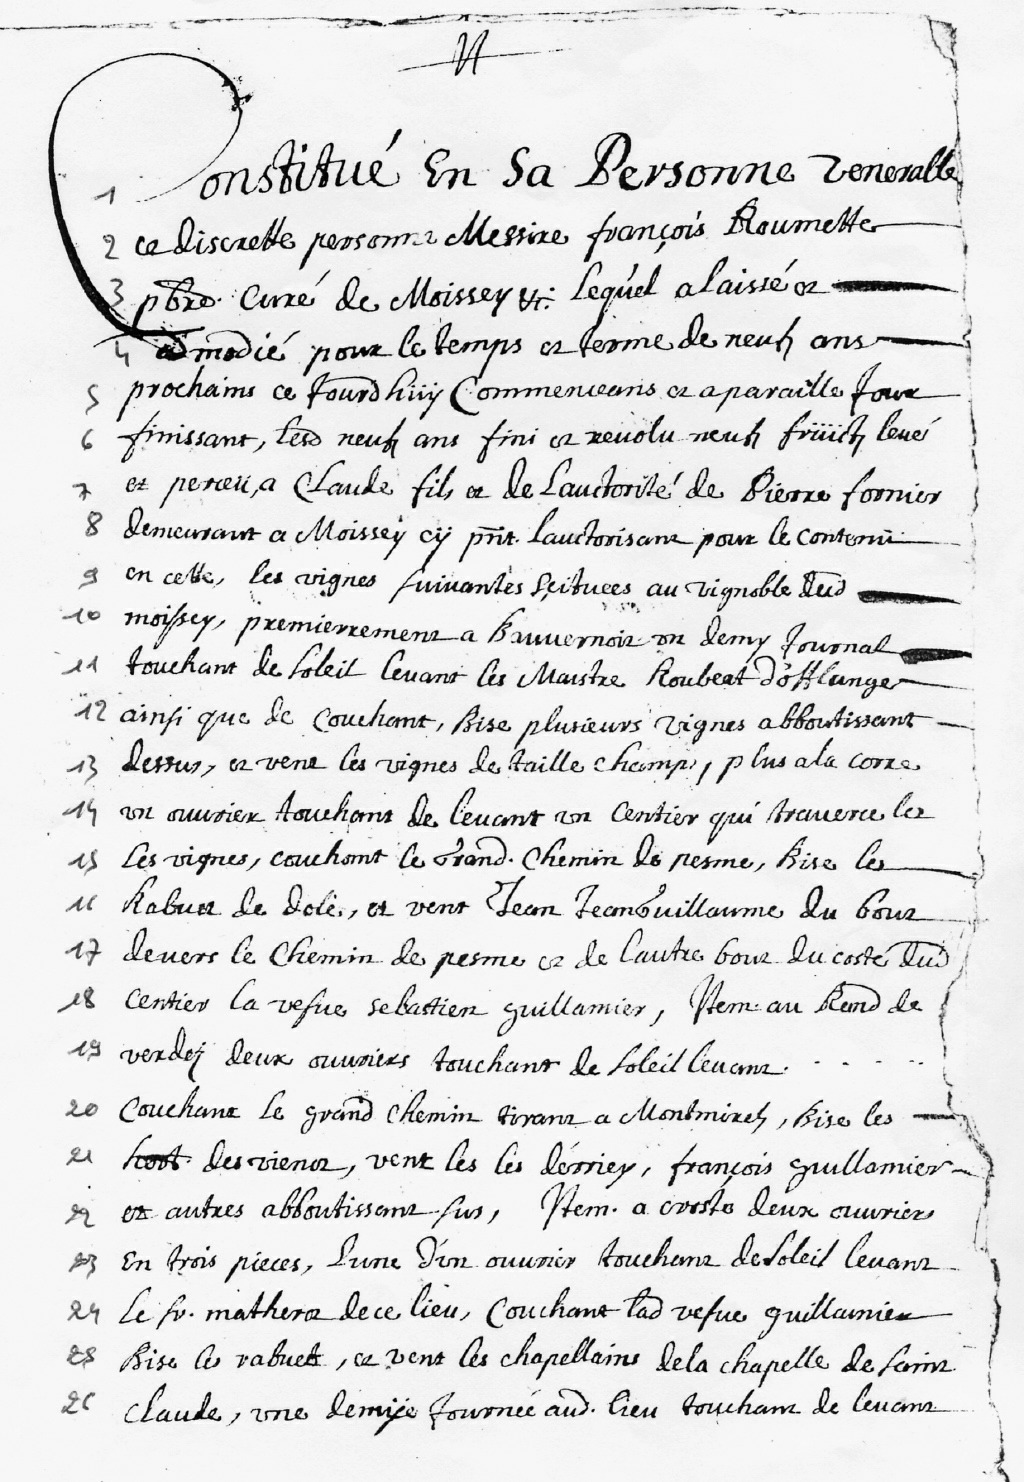 1 Constitué En Sa Personne venerable
2 et discrette personne Messire françois Roumette
3 pbre. Curé de Moissey &c: lequel a laissé et
4 admodié pour le temps et terme de neufz ans
5 prochains ce Jourdhüÿ Commenceans et a paraille Jour
6 finissant, lesd neufz ans fini et reuolu neufz früictz leué
7 et perceu, a Claude fils et de Lauctorité de Pierre fornier
8 demeurant a Moissey cÿ pnt. lauctorisant pour le contenu
9 en cette, les vignes suiuantes scituees au vignoble dud
10 moissey, premierrement a Bauuernois vn demy Journal
11 touchant de soleil leuant les Maistre Roubert d'offlange
12 ainsi que de couchant, Bise plusieurs vignes abboutissant
13 dessus, et vent les vignes de taille champs, plus a la corre
14 vn ouurier touchant de leuant vn centier qui trauerce les
15 Les vignes, couchant le Grand. Chemin de pesme, Bise les
16 Rabuet de dole, et vent Jean JeanGuillaume du bout
17 deuers le Chemin de pesme et de lautre bout du costé dud
18 centier la vefue sebastien guillamier, Item. au Rond de
19 verdez deux ouuriers touchant de soleil leuant. . . . . .
20 Couchant le grand chemin tirant a Montmirez, Bise les
21 des vienot, vent les les derriey, françois guillamier
22 et autres abboutissant sus, Item. a croste deux ouurier
23 En trois pieces, Lune d'un ouurier touchant de soleil leuant
24 Le sr. matherot de ce lieu, Couchant lad vefue guillamier
25 Bise les rabuet, et vent les chapellains de la chapelle de saint
26 claude, vne demÿe Journée aud. lieu touchant de leuant